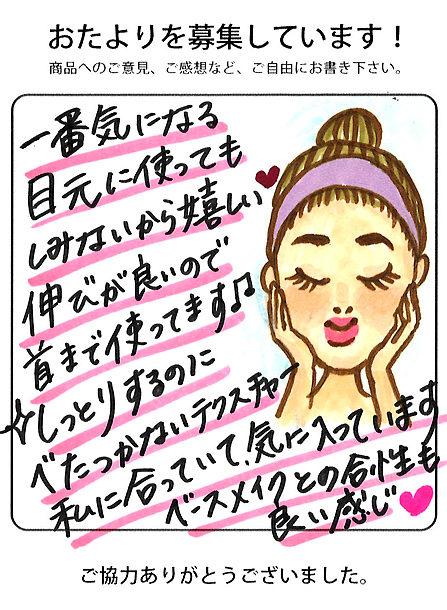 おたよりを募集しています！
商品へのご意見、ご感想など、ご自由にお書き下さい。
一番気になる
目元に使っても
しみないから嬉しい
伸びが良いので
首まで使ってます♫
☆しっとりするのに
べたつかないテクスチャー
私に合っていて、気に入っています
ベースメイクとの相性も
良い感じ
ご協力ありがとうございました。